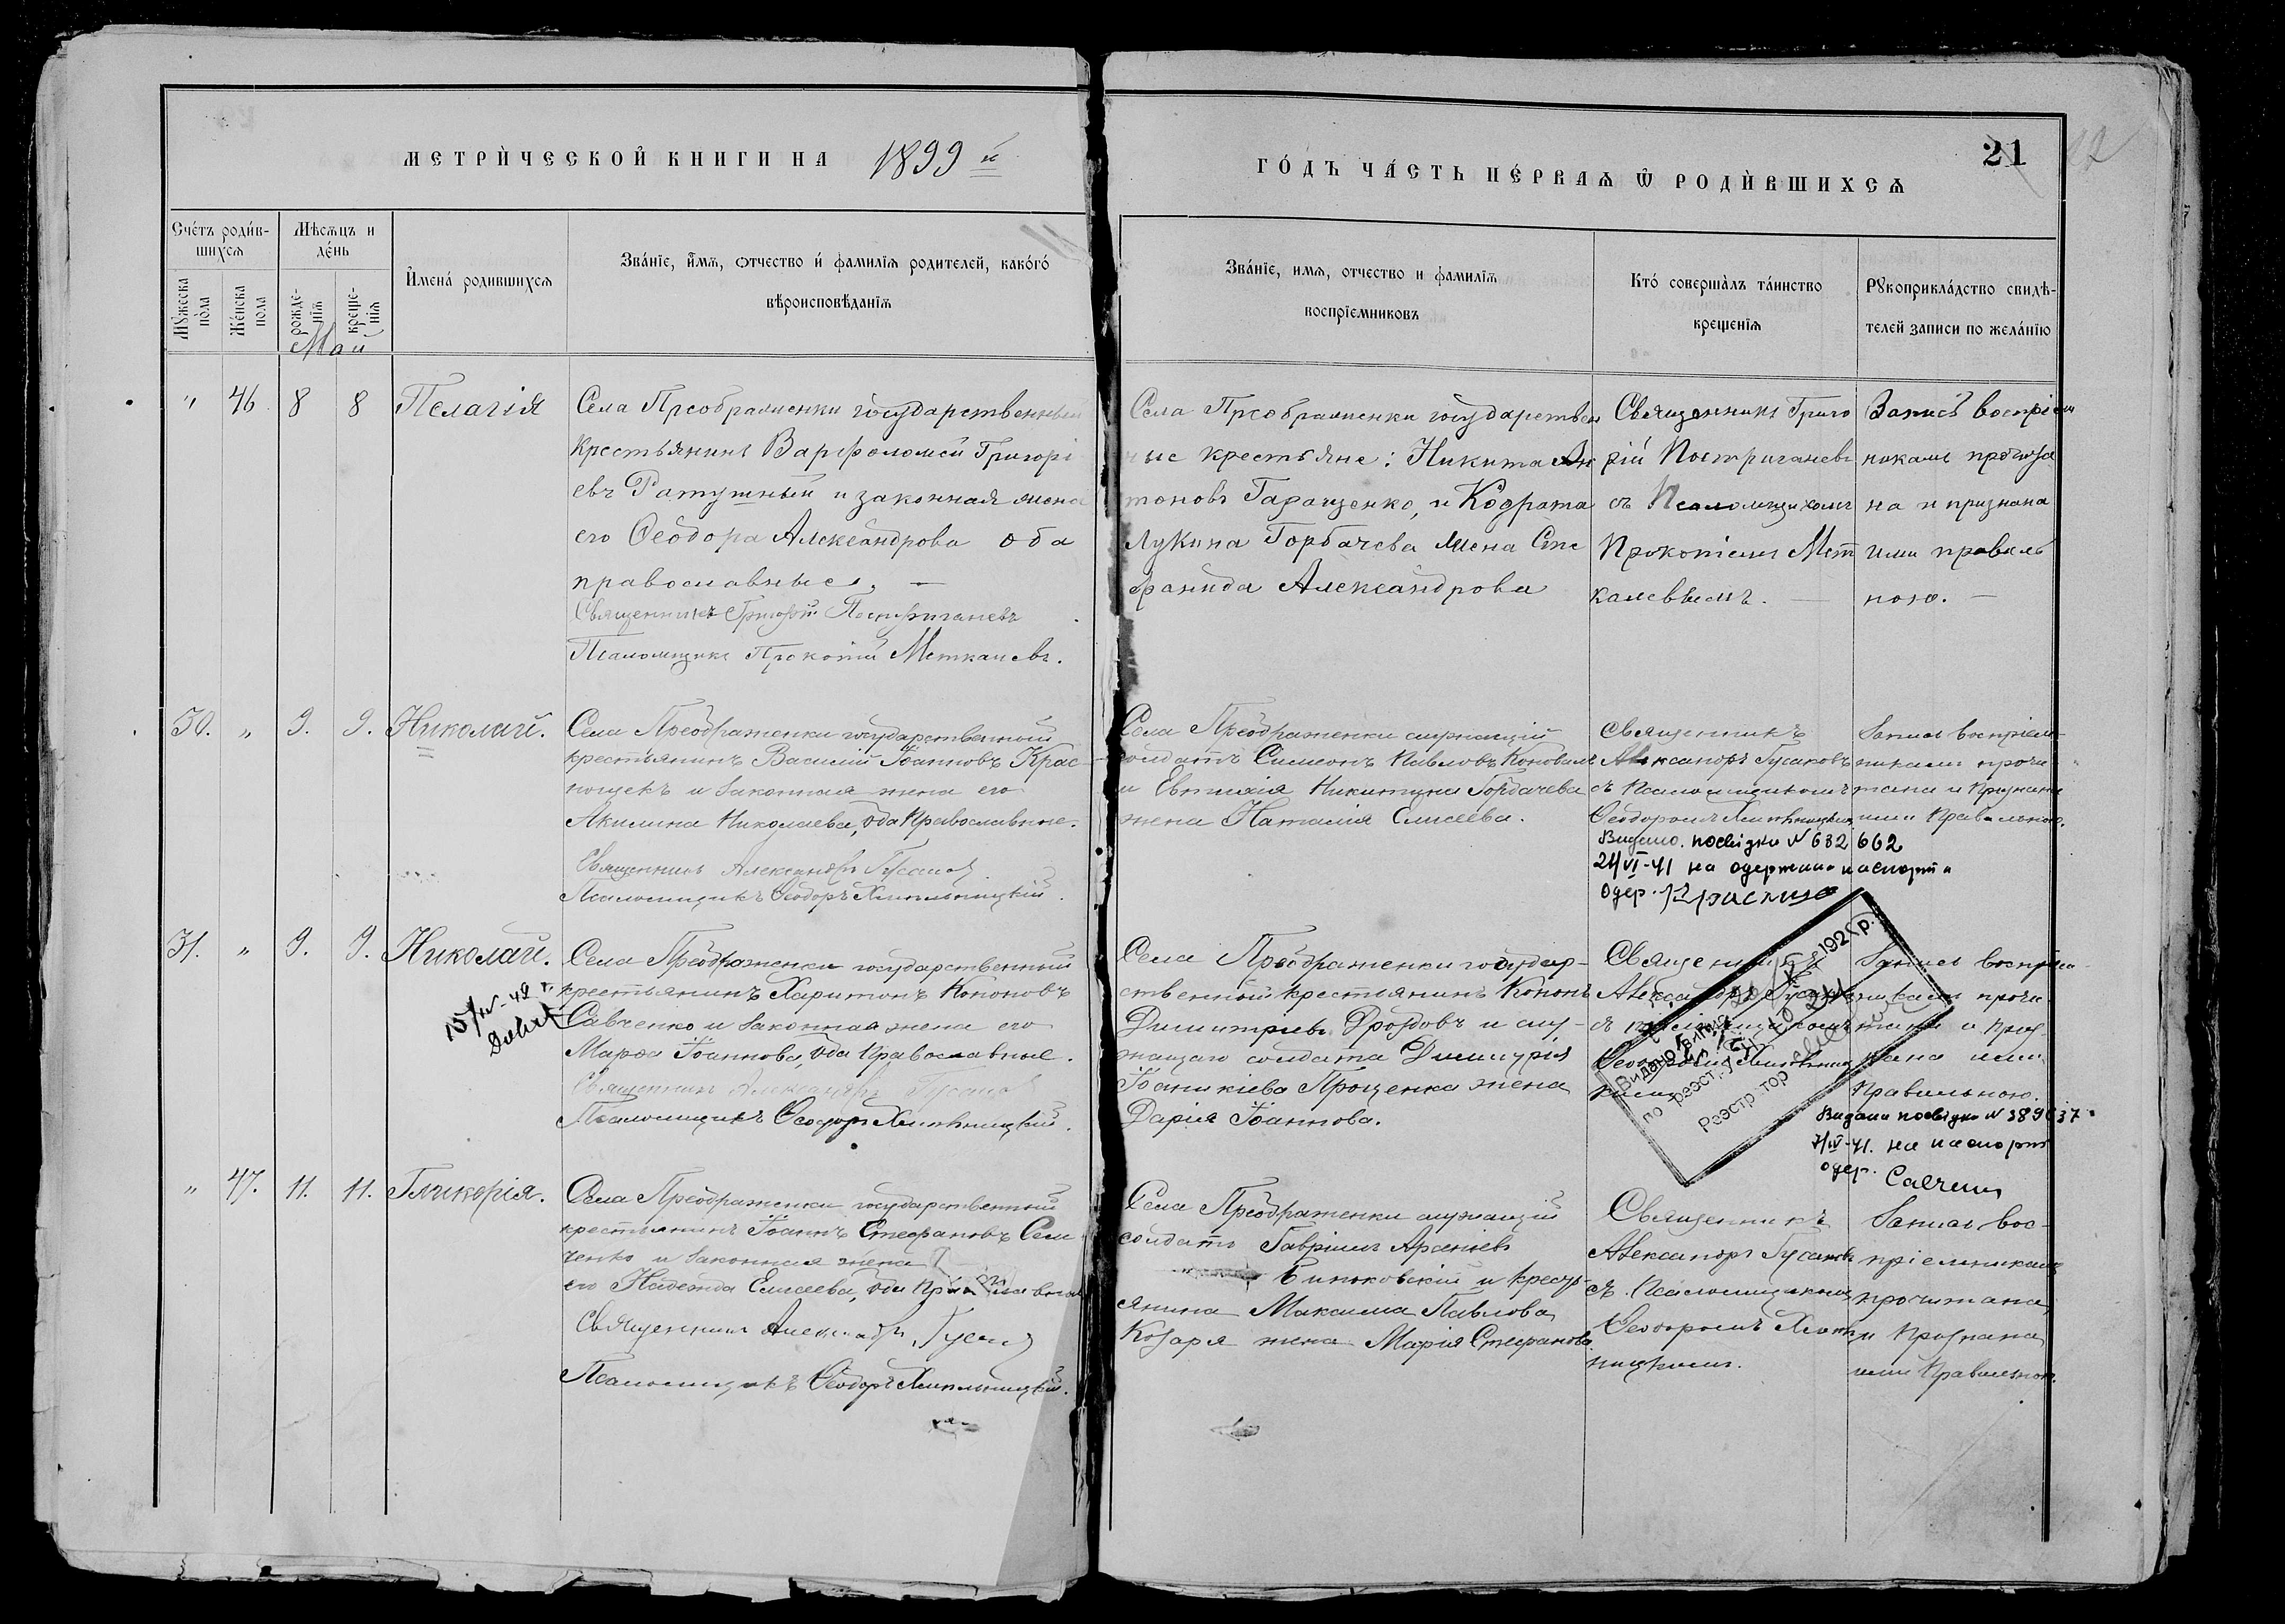 МЕТРИ́ЧЕСКОЙ КНИГИ НА 1899 й
ГО́ДЪ ЧА́СТЬ ПЕ́РВАѦ Ѿ РОДИ́ВШИХСѦ
21
12
Сче́тъ роди́в-
шихсѧ
Мѣсѧцъ и
де́нь
Мꙋжеска
по́ла
Же́нска
пола
рожде-
нїѧ
креще-
нїѧ
И҆мена́ родившихсѧ
Зва́нїе, и҆мѧ, ѻтчество и҆ фамилїѧ родителей, како́гѡ
вѣроисповѣданїѧ
Зва́нїе, имѧ, отчество и фамилїѧ
воспрїемниковъ
Кто́ соверша́лъ та́инство
крещенїѧ
Рꙋкоприкла́дство свидѣ-
телей записи по жела́нїю
Май
" 46 8 8 Пелагія
Села Преображенки государственный
крестьянинъ Варфоломей Григорі
евъ Ратушный и законная жена
его Ѳеодора Александрова оба
православные. —
Священникъ Григорій Постриганевъ
Псаломщикъ Прокопій Меткалевъ.
Села Преображенки государствен
ные крестьяне: Никита Ан
тоновъ Гаращенко, и Кодрата
Лукина Горбачева жена Сте
фанида Александрова
Священникъ Григо
рій Постриганевъ
съ Псаломщикомъ
Прокопіемъ Мет
калевымъ. —
Запись воспріем
никамъ прочита
на и признана
ими праваль
ною. —
30. " 9. 9. Николай.
Села Преображенки государственный
крестьянинъ Василій Іоанновъ Крас-
нощекъ и законная жена его
Акилина Николаева, оба Православные.
Священникъ Александръ Гусаковъ
Псаломщикъ Ѳеодоръ Хмѣльницкій.
Села Преображенки служащій
солдатъ Симеонъ Павловъ Коновалъ
и Евтихія Никитина Горбачева
жена Наталія Елисеева.
Священникъ
Александръ Гусаковъ
съ Псаломщикомъ
Ѳеодоромъ Хмѣльницким
Запись воспріем-
никамъ прочи-
тана и признана
ими Правильною.
Видано посвідки N 632 662
24/VI-41 на одержання паспорта
одер.
31. " 9. 9. Николай.
15/IV-42 г.
Села Преображенки государственный
крестьянинъ Харитонъ Кононовъ
Савченко и законная жена его
Марѳа Іоаннова, оба Православные.
Священникъ Александръ Гусаковъ
Псаломщикъ Ѳеодоръ Хмѣльницкій.
Села Преображенки государ-
ственный крестьянинъ Кононъ
Димитріевъ Дроздовъ и слу-
жащаго солдата Димитрія
Іоаникіева Проценка жена
Дарія Іоаннова.
Священникъ
Александръ Гусаковъ
съ псаломщикомъ
Ѳеодоромъ Хмѣльниц
кимъ
Запись воспріем
никамъ прочи-
тана и приз-
нана ими
Правильною.
Видано випис
по реэстру
Реэстратор
Видани посвідки N 389637
7/IV-41. на паспорт
одер.
" 47. 11. 11. Гликерія.
Села Преображенки государственный
крестьянинъ Іоаннъ Стефановъ Сем
ченко и законная жена
его Надежда Елисеева, оба Православные
Священникъ Александръ Гусаковъ
Псаломщикъ Ѳеодоръ Хмѣльницкій.
Села Преображенки служащій
солдатъ Гавріилъ Арсеніевъ
Биньковскій и кресть-
янина Максима Павлова
Козаря жена Марія Стефанова.
Священникъ
Александръ Гусаковъ
съ Псаломщикомъ
Ѳеодоромъ Хмѣль
ницкимъ.
Запись вос-
пріемникамъ
прочитана
и признана
ими Правильною.